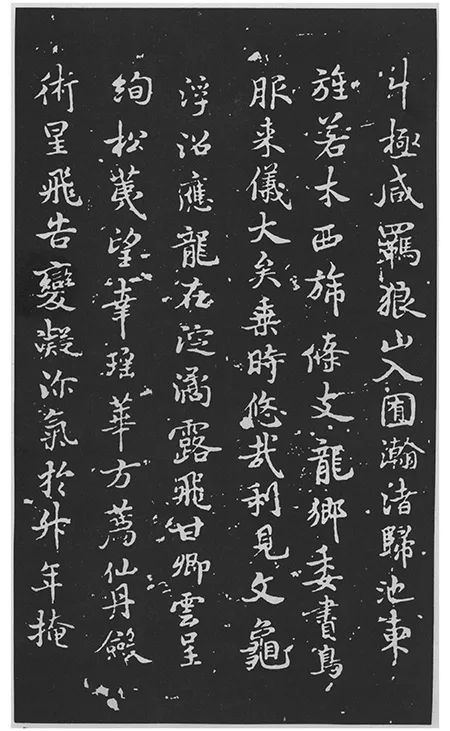 斗極咸羈狼山入囿瀚渚歸池東
旌若木西旆條支龍鄉委書鳥
服来儀大矣乗時悠哉利見文龜
浮沼應龍在淀滴露飛甘卿雲呈
絢松蓂望幸瑶華方薦仙丹斂
術星飛告變凝沴氣於升年掩